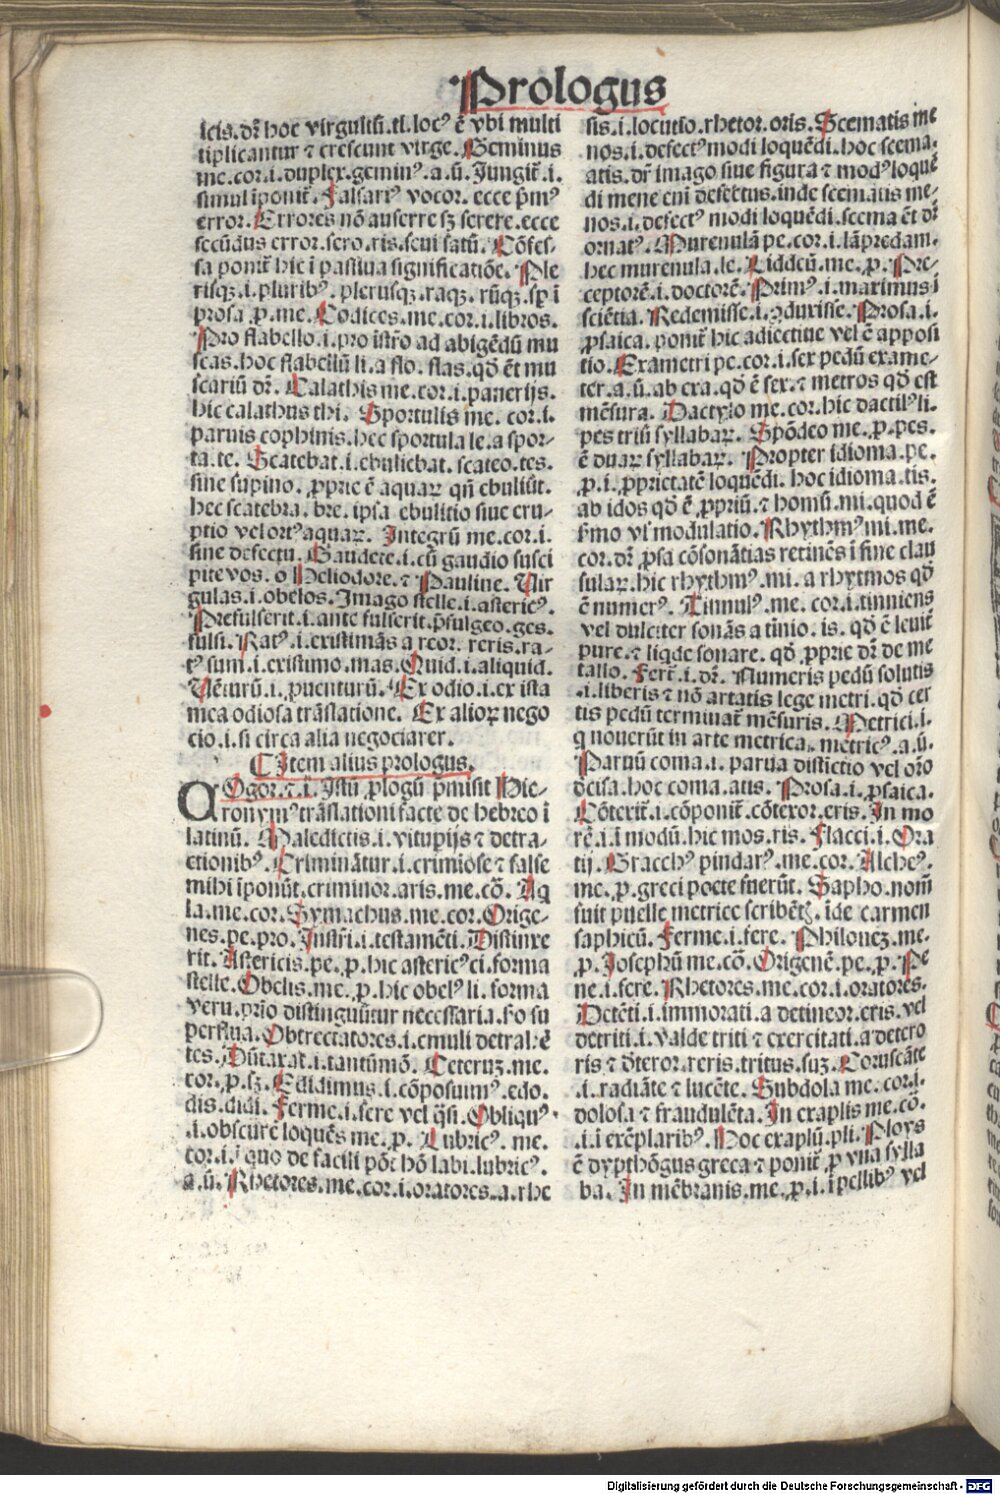 Prologus
icis.dr̄ hoc virgultū.tl.locꝰ ē vbi multi
tiplicantur ⁊ crescunt virge. Geminus
me.cor.i.duplex.geminꝰ.a.ū. Jungit̄.i.
simul īponit̄. Falsariꝰ vocor. ecce pͥmꝰ
error. Errores nō auferre sꝫ serere.ecce
secūdus error.sero.ris.seui satū. Cōfes-
sa ponit̄ hic ī passiua significatiōe. Ple
risqꝫ.i.pluribꝰ. plerusqꝫ.raqꝫ. rūqꝫ.sꝑ ī
prosa.ꝓ.me. Codices.me.cor.i.libros.
Pro flabello.i.pro īstr̄o ad abigēdū mu
scas.hoc flabellū li.a flo. flas.qđ ēt mu
scariū dr̄. Calathis me.cor.i.panerijs.
hic calathus thi. Sportulis me. cor.i.
paruis cophinis.hec sportula le.a spor-
ta.te. Scatebat.i.ebuliebat. scateo.tes.
sine supino. ꝓprie ē aquaꝝ qn̄ ebuliūt.
hec scatebra. bre. ipsa ebulitio siue eru-
ptio vel ortꝰ aquaꝝ. Integrū me.cor.i.
sine defectu. Gaudete.i.cū gaudio susci
pite vos. o Heliodore.⁊ Pauline. Vir
gulas.i.obelos. Imago stelle.i.astericꝰ.
Prefulserit.i.ante fulserit.p̄fulgeo.ges.
fulsi. Ratꝰ.i.existimās a reor. reris.ra-
tꝰ sum.i.existimo.mas. Quid.i.aliquid.
Vēturū.i.ꝓuenturū. Ex odio.i.ex ista
mea odiosa trāslatione. Ex alioꝝ nego
cio.i.si circa alia negociarer.
Item alius prologus.
COgor.⁊.c̄. Istū ꝓlogū p̄misit Hie-
ronymꝰ trāslationi facte de hebreo ī
latinū. Maledictis.i.vitupijs ⁊ detra-
ctionibꝰ. Criminātur.i.crimiose ⁊ false
mihi īponūt.criminor.aris.me.cō. Aq
la.me.cor. Symachus.me.cor. Orige-
nes.pe.pro. Instr̄i.i.testamēti. Distinxe
rit. Astericis.pe.ꝓ.hic astericꝰ ci.forma
stelle. Obelis.me.ꝓ.hic obelꝰ li. forma
veru.pͥmo distinguūtur necessaria. so su
perflua. Obtrectatores.i.emuli detrahē
tes. Dūtaxat.i.tantūmō. Ceteruꝫ.me.
cor.ꝓ.sꝫ. Edidimus.i.cōposuimꝰ.edo.
dis.didi. Ferme.i.fere vel q̄si. Obliquꝰ.
.i.obscure loquēs me.ꝓ. Lubricꝰ. me.
cor.i.ī quo de facili pōt hō labi.lubricꝰ.
a.ū. Rhetores.me.cor.i.oratores.a.rhe
sis.i.locutio.rhetor.oris. Scematis me
nos.i.defectꝰ modi loquēdi.hoc scema.
atis.dr̄ imago siue figura ⁊ modꝰ loquē
di mene eni defectus.inde scematis me-
nos.i.defectꝰ modi loquēdi.scema ēt dr̄
ornatꝰ. Murenulā pe.cor.i.lāpredam.
hec murenula.le. Liddeū.me.ꝓ. Pre-
ceptorē.i.doctorē. Primꝰ.i.maximus ī
sciētia. Redemisse.i.ꝯduxisse. Prosa.i.
ꝓsaica. ponit̄ hic adiectiue vel ē apposi
tio. Exametri pe.cor.i.sex pedū exame-
ter.a.ū.ab exa.qđ ē sex.⁊ metros qđ est
mēsura. Dactylo me.cor.hic dactilꝰ li.
pes triū syllabaꝝ. Spōdeo me.ꝓ.pes.
ē duaꝝ syllabaꝝ. Propter idioma.pe.
.ꝓ.i.ꝓprietatē loquēdi. hoc idioma.tis.
ab idos qđ ē ꝓpriū.⁊ homū.mi.quod ē
s̄mo vl̄ modulatio. Rhythmꝰ mi.me.
cor.dr̄ ꝓsa cōsonātias retinēs ī fine clau
sulaꝝ.hic rhythmꝰ.mi.a rhytmos qđ
ē numerꝰ. Tinnulꝰ.me. cor.i.tinniens
vel dulciter sonās a tīnio.is. qđ ē leuit̄
pure.⁊ liqde sonare. qđ ꝓprie dr̄ de me
tallo. Fert̄.i.dr̄. Numeris pedū solutis
.i.liberis ⁊ nō artatis lege metri.qđ cer
tis pedū terminat̄ mēsuris. Metrici.i.
q nouerūt in arte metrica. metricꝰ.a.ū.
Paruū coma.i.parua distīctio vel or̄o
decisa.hoc coma.atis. Prosa.i.ꝓsaica.
Cōterit̄.i.cōponit̄.cōtexor.eris. In mo
rē.i.ī modū.hic mos.ris. Flacci.i. Ora
tij. Gracchꝰ pindarꝰ.me.cor. Alcheꝰ.
me.ꝓ.greci poete fuerūt. Sapho.nomē
fuit puelle metrice scribētꝭ. īde carmen
saphicū. Ferme.i.fere. Philoneꝫ.me.
.ꝓ. Josephū me.cō. Origenē.pe.ꝓ. Pe
ne.i.fere. Rhetores.me.cor.i.oratores.
Detēti.i.immorati.a detineor.eris.vel
detriti.i.valde triti ⁊ exercitati.a detero
ris ⁊ d̄teror.reris.tritus.suꝫ. Coruscāte
.i.radiāte ⁊ lucēte. Subdola me.cor.i.
dolosa ⁊ fraudulēta. In exaplis me.cō.
.i.ī exēplaribꝰ. Hoc exaplū.pli. Ploys
ē dypthōgus greca ⁊ ponit̄ ꝓ vna sylla
ba. In mēbranis.me.ꝓ.i.ī pellibꝰ vel
Digitalisierung gefördert durch die Deutsche Forschungsgemeinschaft - DFG